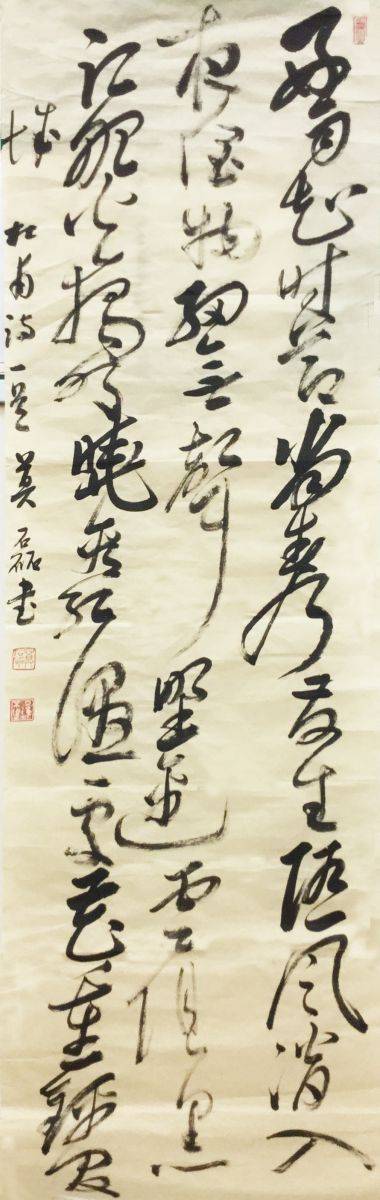 好雨知時節當春乃發生隨風潛入
夜潤物細無聲野徑雲俱黑
江船火獨明曉看紅濕處花重錦官
城 杜甫詩一首 莫磊書